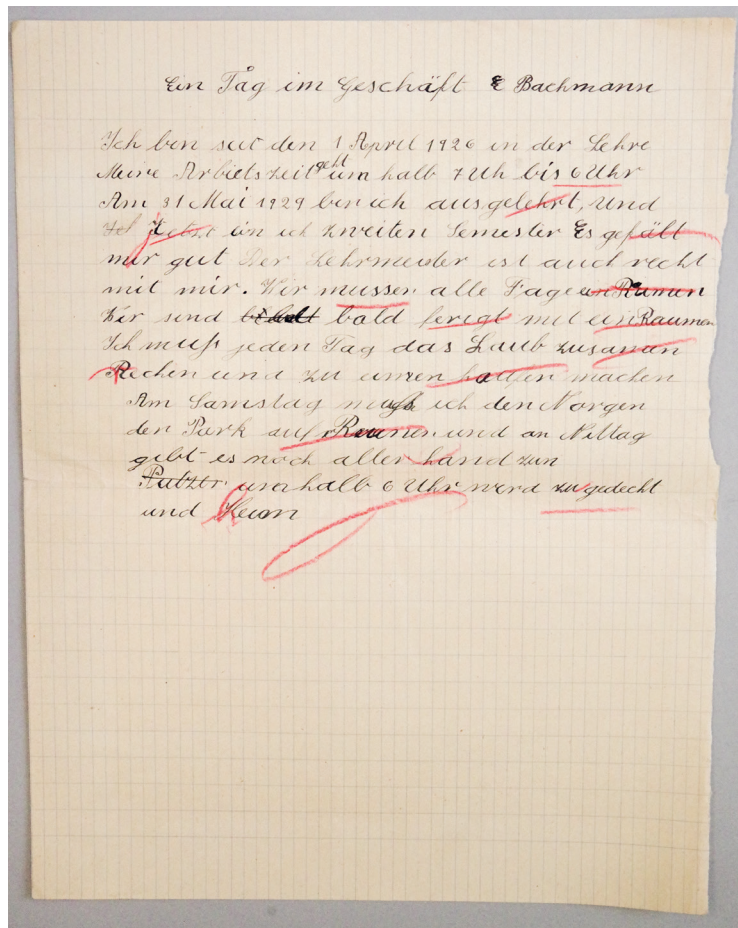 Ein Tag im Geschäft E Bachmann
Ich bin seit den 1 April 1926 in der Lehre
Meine Arbietszeit geht um halb 7 Uh bis 6 Uhr
Am 31 Mai 1929 bin ich ausgelehrt, und
Ich Jetzt bin ich zweiten Semester Es gefält
mir gut Der Lehrmeister ist auch recht
mit mir. Wir mussen alle Tage Raumen
Wir sind bald ferigt mit ein Raumen
Ich muß jeden Tag das Laub zusamen
Rechen und zu machen
Am Samstag muß ich den Morgen
der Park auf Raumen und an Mittag
gibt es noch aller hand zun
Putzer um halb 6 Uhr werd zu gedecht
und Heim